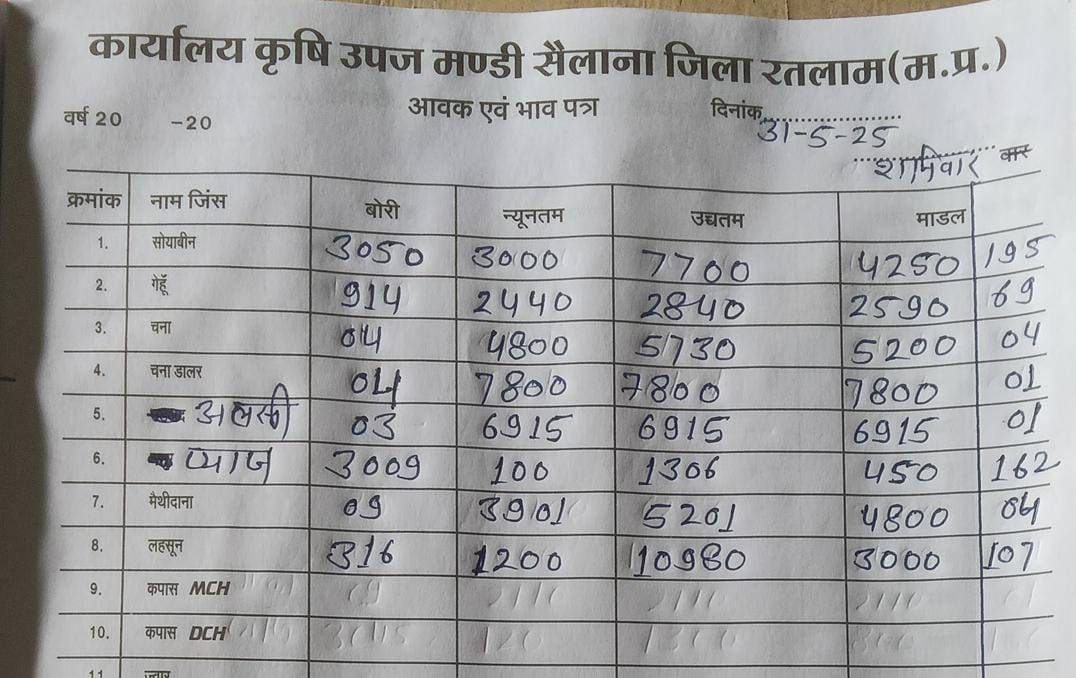 कार्यालय कृषि उपज मण्डी सैलाना जिला रतलाम(म.प्र.)
आवक एवं भाव पत्र
वर्ष 20 -20 दिनांक 31-5-25
शनिवार वार
क्रमांक नाम जिंस बोरी न्यूनतम उच्चतम माडल
1. सोयाबीन 3050 3000 7700 4250 195
2. गेहूँ 914 2440 2840 2590 69
3. चना 04 4800 5730 5200 04
4. चना डालर 04 7800 7800 7800 01
5. अलसी 03 6915 6915 6915 01
6. प्याज 3009 100 1306 450 162
7. मैथीदाना 09 3901 5201 4800 04
8. लहसून 316 1200 10980 3000 107
9. कपास MCH
10. कपास DCH
11. ज्वार